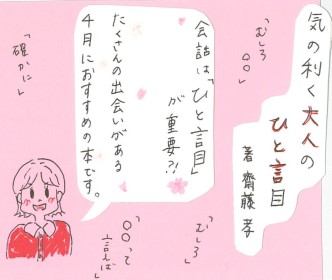 気の利く大人の
ひと言目
著 齋藤 孝
「むしろ
○○」
会話は「ひと言目」
が重要?!
たくさんの出会いがある
4月におすすめの本です。
「確かに」
「むしろ」
「○○って
言えば」